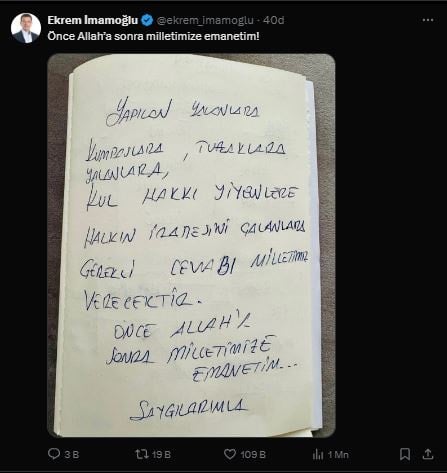 Ekrem İmamoğlu @ekrem_imamoglu · 40d
Önce Allah'a sonra milletimize emanetim!
YAPILAN YALANLARA
KUMPASLARA, TUZAKLARA
YALANLARA,
KUL HAKKI YİYENLERE
HALKIN İRADESİNİ ÇALANLARA
GEREKLİ CEVABI MİLLETİMİZ
VERECEKTİR.
ÖNCE ALLAH'A
SONRA MİLLETİMİZE
EMANETİM...
SAYGILARIMLA
3 B 19 B 109 B 1 Mn